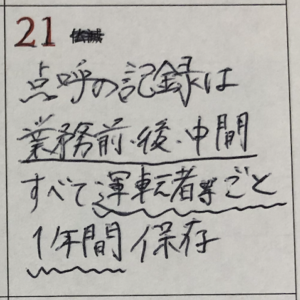 21 仏滅
点呼の記録は
業務前・後・中間
すべて運転者等ごと
1年間保存